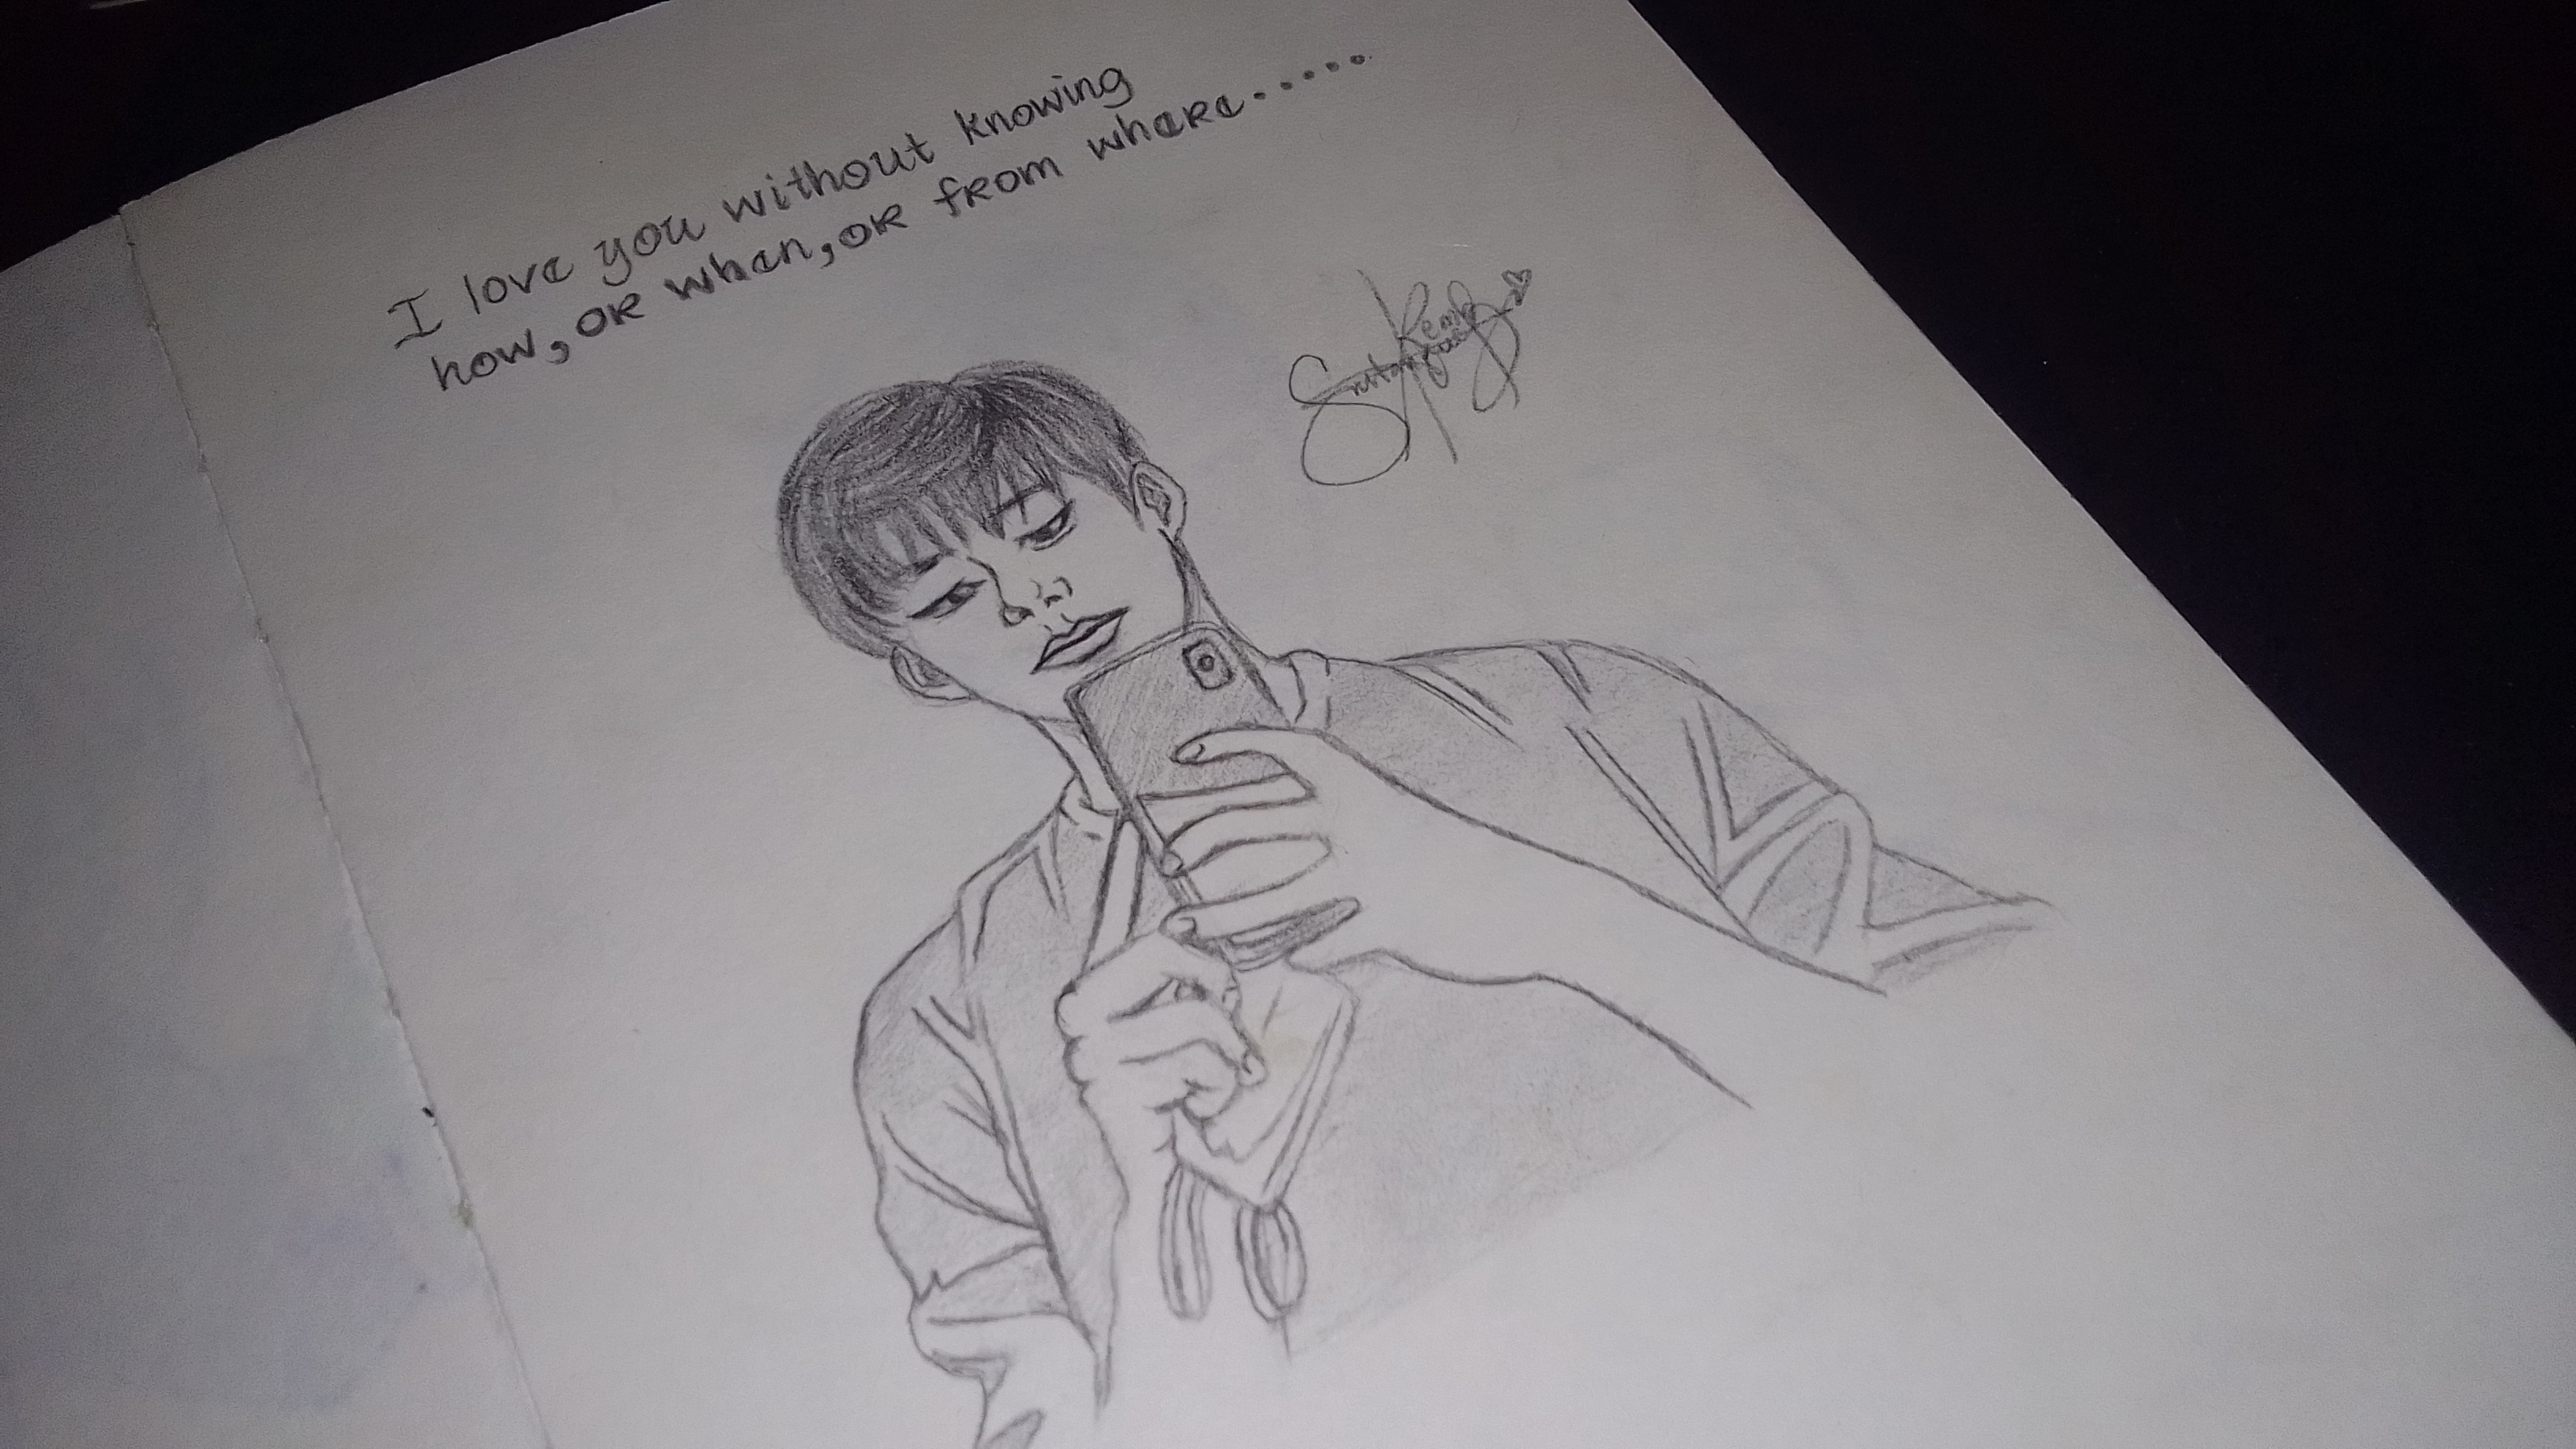 I love you without knowing
how, or when, or from where......